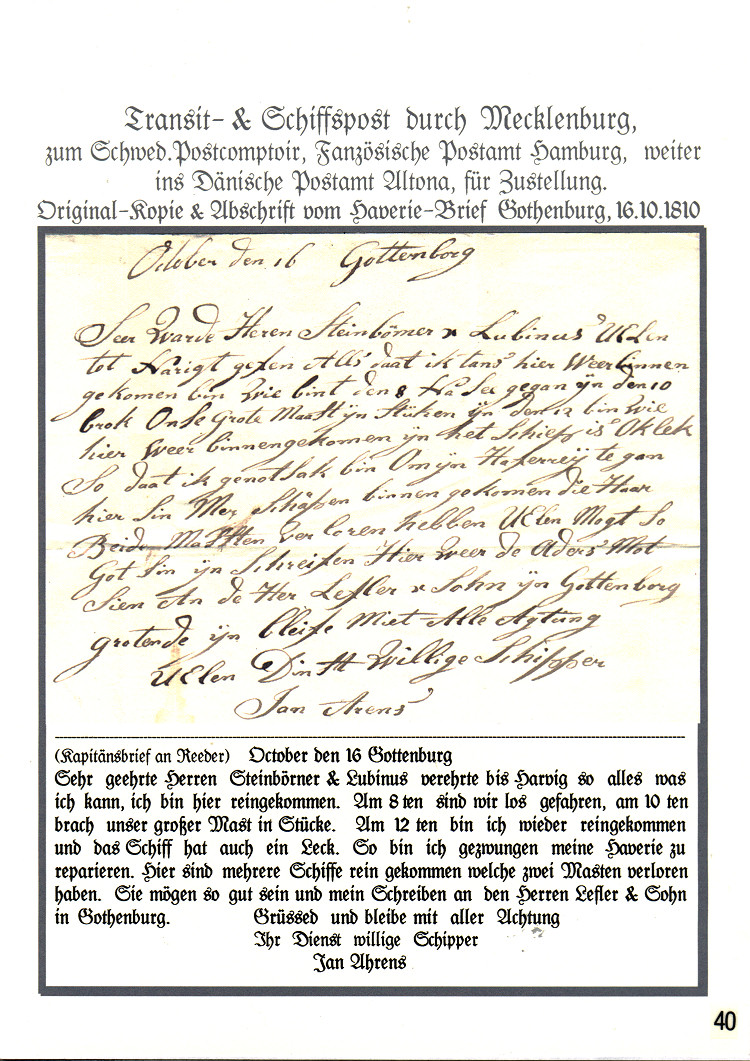 Transit- & Schiffspost durch Mecklenburg,
zum Schwed.Postcomptoir, Fanzösische Postamt Hamburg, weiter
ins Dänische Postamt Altona, für Zustellung.
Original-Kopie & Abschrift vom Haverie-Brief Gothenburg, 16.10.1810
October den 16 Gottenborg
Seer Warde Heren Steinbömer & Lubinus UElen
tot Narigt gefen Alls daat ik tans hier Weer binnen
gekomen bin Wie bint den 8 Na See gegan ÿn den 10
brok Onse Grote Maast ÿn Stüken ÿn den 12 bin Wie
hier Weer binnengekomen ÿn het Schief is Ok lek
So daat ik genotsak bin Om ÿn Haferreÿ te gan
hier Sin Mer Schäpen binnen gekomen die Haar
Beide Maasten verloren hebben UElen Mogt So
Got Sin ÿn Schreifen Hier weer de Aders Mot
Sien An de Her Lefler & Sohn ÿn Gottenborg
Grotende ÿn bleife Miet Alle Agtung
UElen Dinst Willige Schipper
Jan Arens
(Kapitänsbrief an Reeder) October den 16 Gottenburg
Sehr geehrte Herren Steinbörner & Lubinus verehrte bis Harvig so alles was
ich kann, ich bin hier reingekommen. Am 8 ten sind wir los gefahren, am 10 ten
brach unser großer Mast in Stücke. Am 12 ten bin ich wieder reingekommen
und das Schiff hat auch ein Leck. So bin ich gezwungen meine Haverie zu
reparieren. Hier sind mehrere Schiffe rein gekommen welche zwei Masten verloren
haben. Sie mögen so gut sein und mein Schreiben an den Herren Lefler & Sohn
in Gothenburg. Grüssed und bleibe mit aller Achtung
Ihr Dienst willige Schipper
Jan Ahrens
40